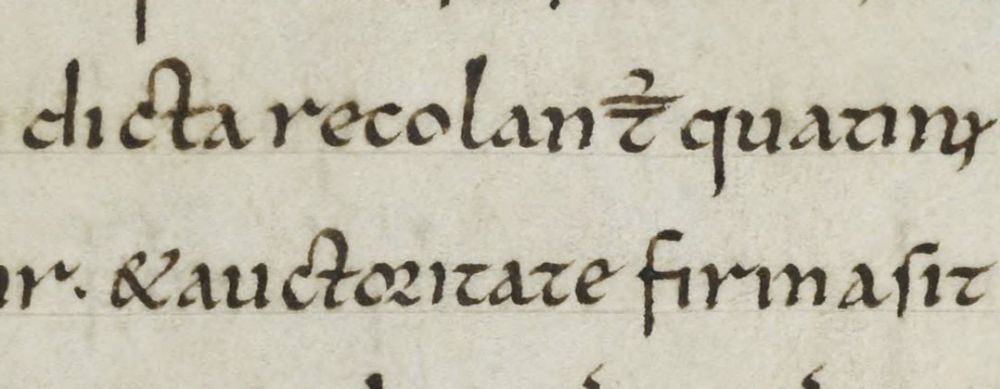 dicta recolant̄ quatinus
ur. & auctoritate firma sit